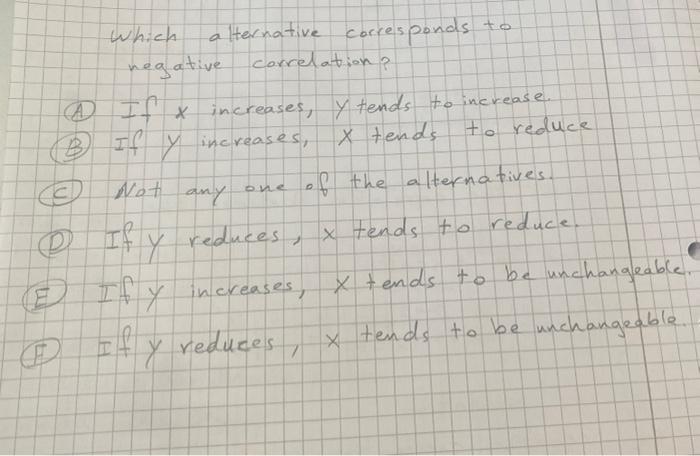 Which alternative corresponds to
negative correlation?
A If x increases, y tends to increase.
B If y increases, x tends to reduce
C Not any one of the alternatives.
D If y reduces, x tends to reduce.
E If y increases, x tends to be unchangeable.
F If y reduces, x tends to be unchangeable.